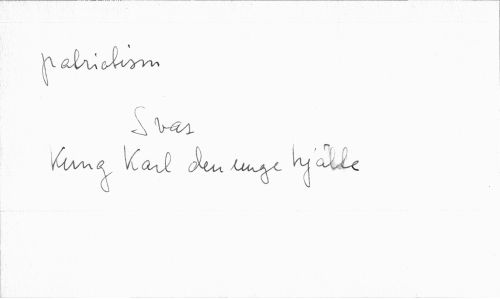 patriotism
Svas
Kung Karl den unge hjälte